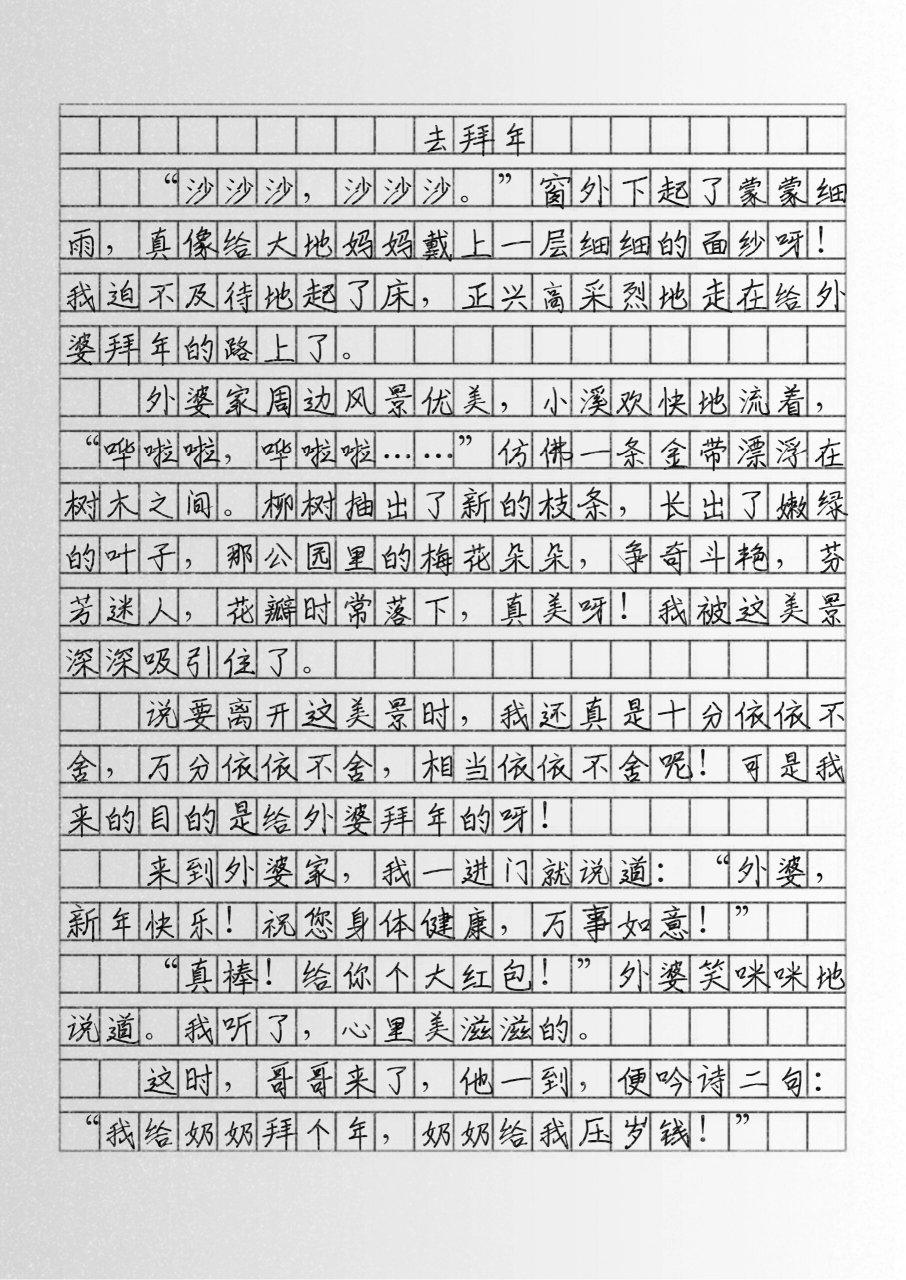 去拜年
“沙沙沙，沙沙沙。”窗外下起了蒙蒙细
雨，真像给大地妈妈戴上一层细细的面纱呀！
我迫不及待地起了床，正兴高采烈地走在给外
婆拜年的路上了。
外婆家周边风景优美，小溪欢快地流着，
“哗啦啦，哗啦啦……”仿佛一条金带漂浮在
树木之间。柳树抽出了新的枝条，长出了嫩绿
的叶子，那公园里的梅花朵朵，争奇斗艳，芬
芳迷人，花瓣时常落下，真美呀！我被这美景
深深吸引住了。
说要离开这美景时，我还真是十分依依不
舍，万分依依不舍，相当依依不舍呢！可是我
来的目的是给外婆拜年的呀！
来到外婆家，我一进门就说道：“外婆，
新年快乐！祝您身体健康，万事如意！”
“真棒！给你个大红包！”外婆笑咪咪地
说道。我听了，心里美滋滋的。
这时，哥哥来了，他一到，便吟诗二句：
“我给奶奶拜个年，奶奶给我压岁钱！”